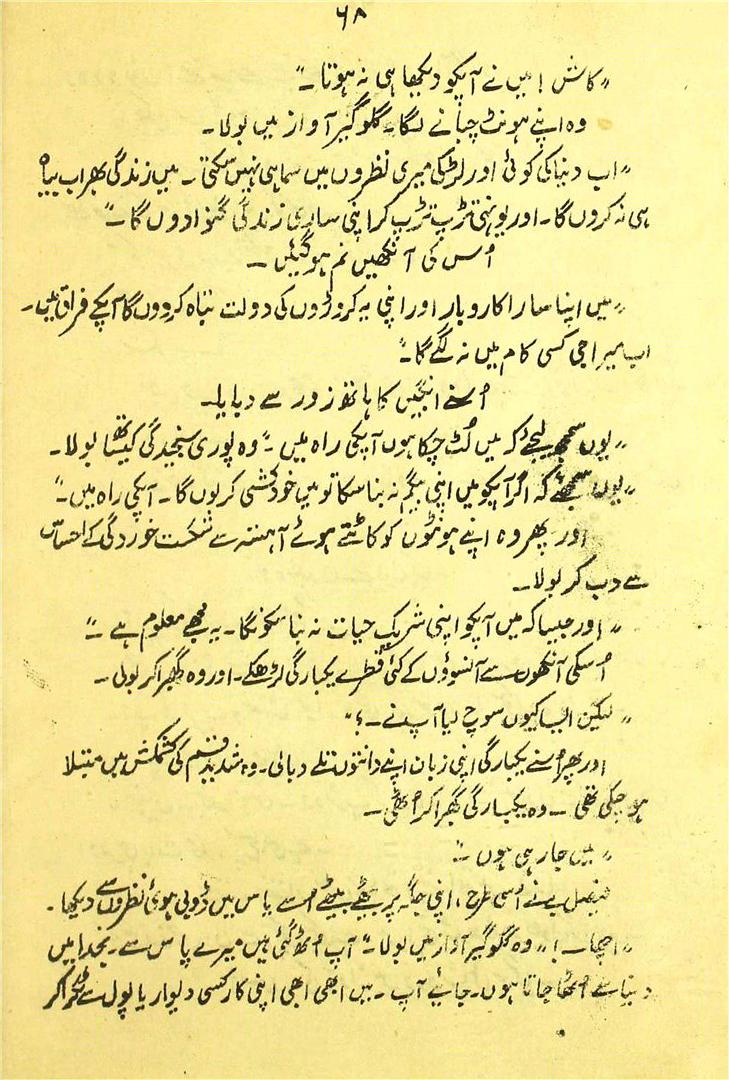 ۶۸
"کاش! میں نے آپکو دیکھا ہی نہ ہوتا۔"
وہ اپنے ہونٹ چبانے لگا۔ گلوگیر آواز میں بولا۔
"اب دنیا کی کوئی اور لڑکی میری نظروں میں سما ہی نہیں سکتی۔ میں زندگی بھر اب بیاہ
ہی نہ کروں گا۔ اور یونہی تڑپ تڑپ کر اپنی ساری زندگی گنوا دوں گا۔"
اُس کی آنکھیں نم ہو گئیں۔
"میں اپنا سارا کاروبار اور اپنی یہ کروڑوں کی دولت تباہ کردوں گا آپکے فراق میں۔
اب میرا جی کسی کام میں نہ لگے گا۔"
اُسنے انجیں کا ہاتھ زور سے دبایا۔
"یوں سمجھ لیجئے کہ میں لُٹ چکا ہوں آپکی راہ میں۔" وہ پوری سنجیدگی کیساتھ بولا۔
"یوں سمجھئے کہ اگر آپکو میں اپنی بیگم نہ بنا سکا تو میں خودکشی کرلوں گا۔ آپکی راہ میں۔"
اور پھر وہ اپنے ہونٹوں کو کاٹتے ہوئے آہستہ سے شکست خوردگی کے احساس
سے دب کر بولا۔
"اور جیسا کہ میں آپکو اپنی شریکِ حیات نہ بنا سکونگا۔ یہ مجھے معلوم ہے۔"
اُسکی آنکھوں سے آنسوؤں کے کئی قطرے یکبارگی لڑھکے۔ اور وہ گھبرا کر بولی۔
"لیکن ایسا کیوں سوچ لیا آپ نے۔؟"
اور پھر اُسنے یکبارگی اپنی زبان اپنے دانتوں تلے دبالی۔ وہ شدید قسم کی کشمکش میں مبتلا
ہو چکی تھی۔ وہ یکبارگی گھبرا کر اُٹھی۔
"میں جا رہی ہوں۔"
فیصل نے اُسی طرح، اپنی جگہ پر بیٹھے بیٹھے اُسے یاس میں ڈوبی ہوئی نظروں سے دیکھا۔
"اچھا۔!" وہ گلوگیر آواز میں بولا۔ "آپ اُٹھ گئی ہیں میرے پاس سے۔ بخدا میں
دنیا سے اُٹھا جاتا ہوں۔ جایئے آپ۔ میں ابھی ابھی اپنی کار کسی دیوار یا پول سے ٹکرا کر